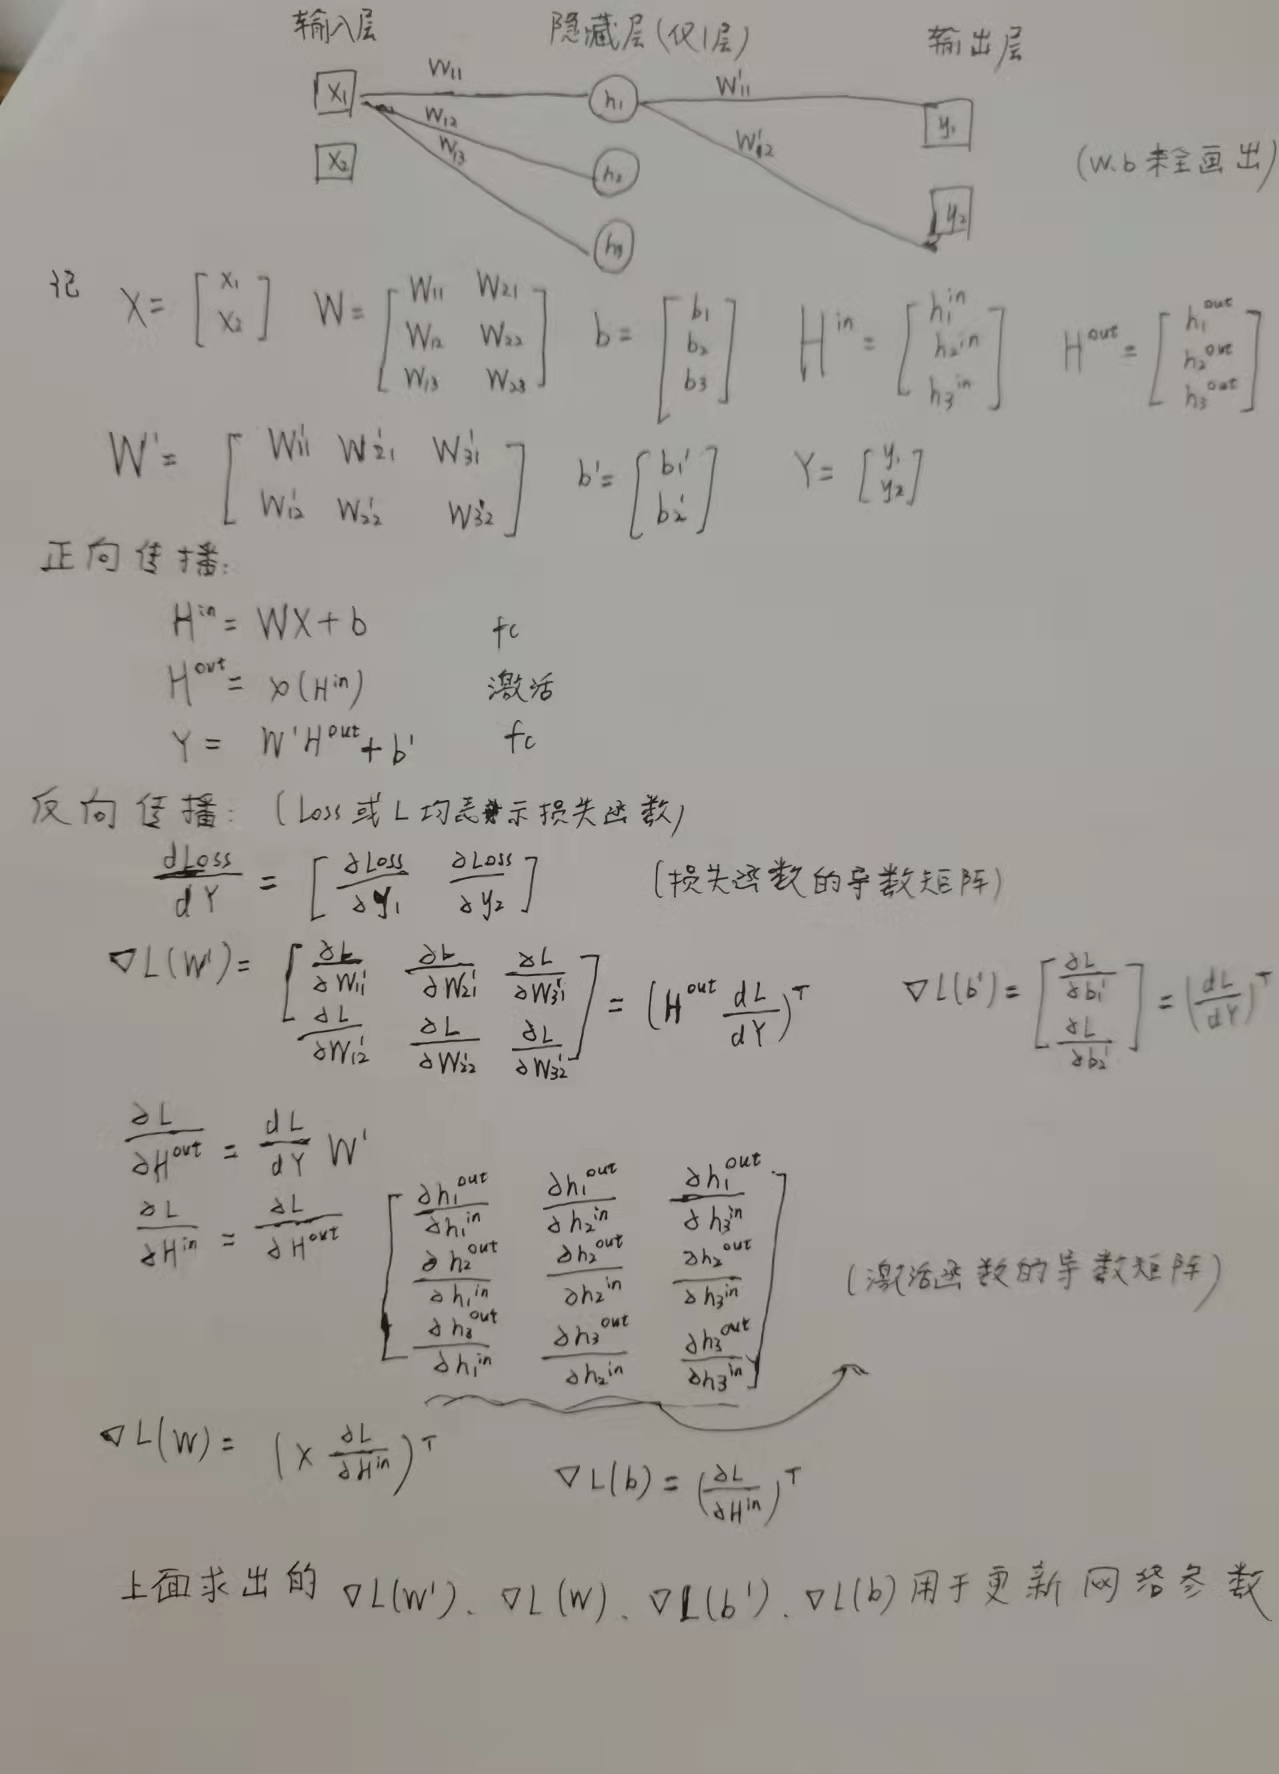 输入层 隐藏层(仅1层) 输出层
x₁ W₁₁ h₁ W'₁₁ y₁
W₁₂ W'₁₂
x₂ W₁₃ h₂ (W.b未全画出)
h₃ y₂
记 X = [x₁; x₂] W = [W₁₁ W₂₁; W₁₂ W₂₂; W₁₃ W₂₃] b = [b₁; b₂; b₃] H^in = [h₁^in; h₂^in; h₃^in] H^out = [h₁^out; h₂^out; h₃^out]
W' = [W'₁₁ W'₂₁ W'₃₁; W'₁₂ W'₂₂ W'₃₂] b' = [b₁'; b₂'] Y = [y₁; y₂]
正向传播:
H^in = WX + b fc
H^out = (H^in) 激活
Y = W'H^out + b' fc
反向传播: (Loss或L均表示损失函数)
dLoss/dY = [∂Loss/∂y₁ ∂Loss/∂y₂] (损失函数的导数矩阵)
∇L(W') = [∂L/∂W'₁₁ ∂L/∂W'₂₁ ∂L/∂W'₃₁; ∂L/∂W'₁₂ ∂L/∂W'₂₂ ∂L/∂W'₃₂] = (H^out dL/dY)^T ∇L(b') = [∂L/∂b₁'; ∂L/∂b₂'] = (dL/dY)^T
∂L/∂H^out = dL/dY W'
∂L/∂H^in = ∂L/∂H^out [∂h₁^out/∂h₁^in ∂h₁^out/∂h₂^in ∂h₁^out/∂h₃^in; ∂h₂^out/∂h₁^in ∂h₂^out/∂h₂^in ∂h₂^out/∂h₃^in; ∂h₃^out/∂h₁^in ∂h₃^out/∂h₂^in ∂h₃^out/∂h₃^in] (激活函数的导数矩阵)
∇L(W) = (X ∂L/∂H^in)^T ∇L(b) = (∂L/∂H^in)^T
上面求出的 ∇L(W')、∇L(W)、∇L(b')、∇L(b) 用于更新网络参数